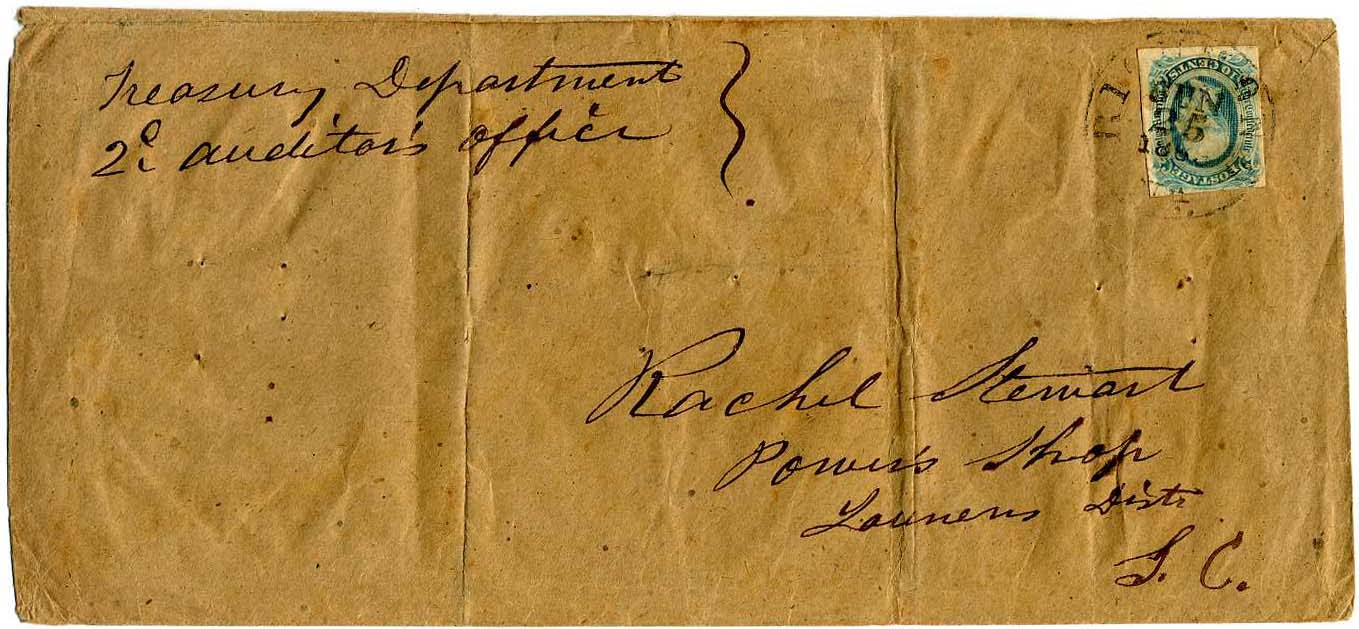 Treasury Department
2d auditor's office
TEN CENTS
POSTAGE
JUN
15
Rachel Stewart
Power's Shop
Laurens Distr
S. C.